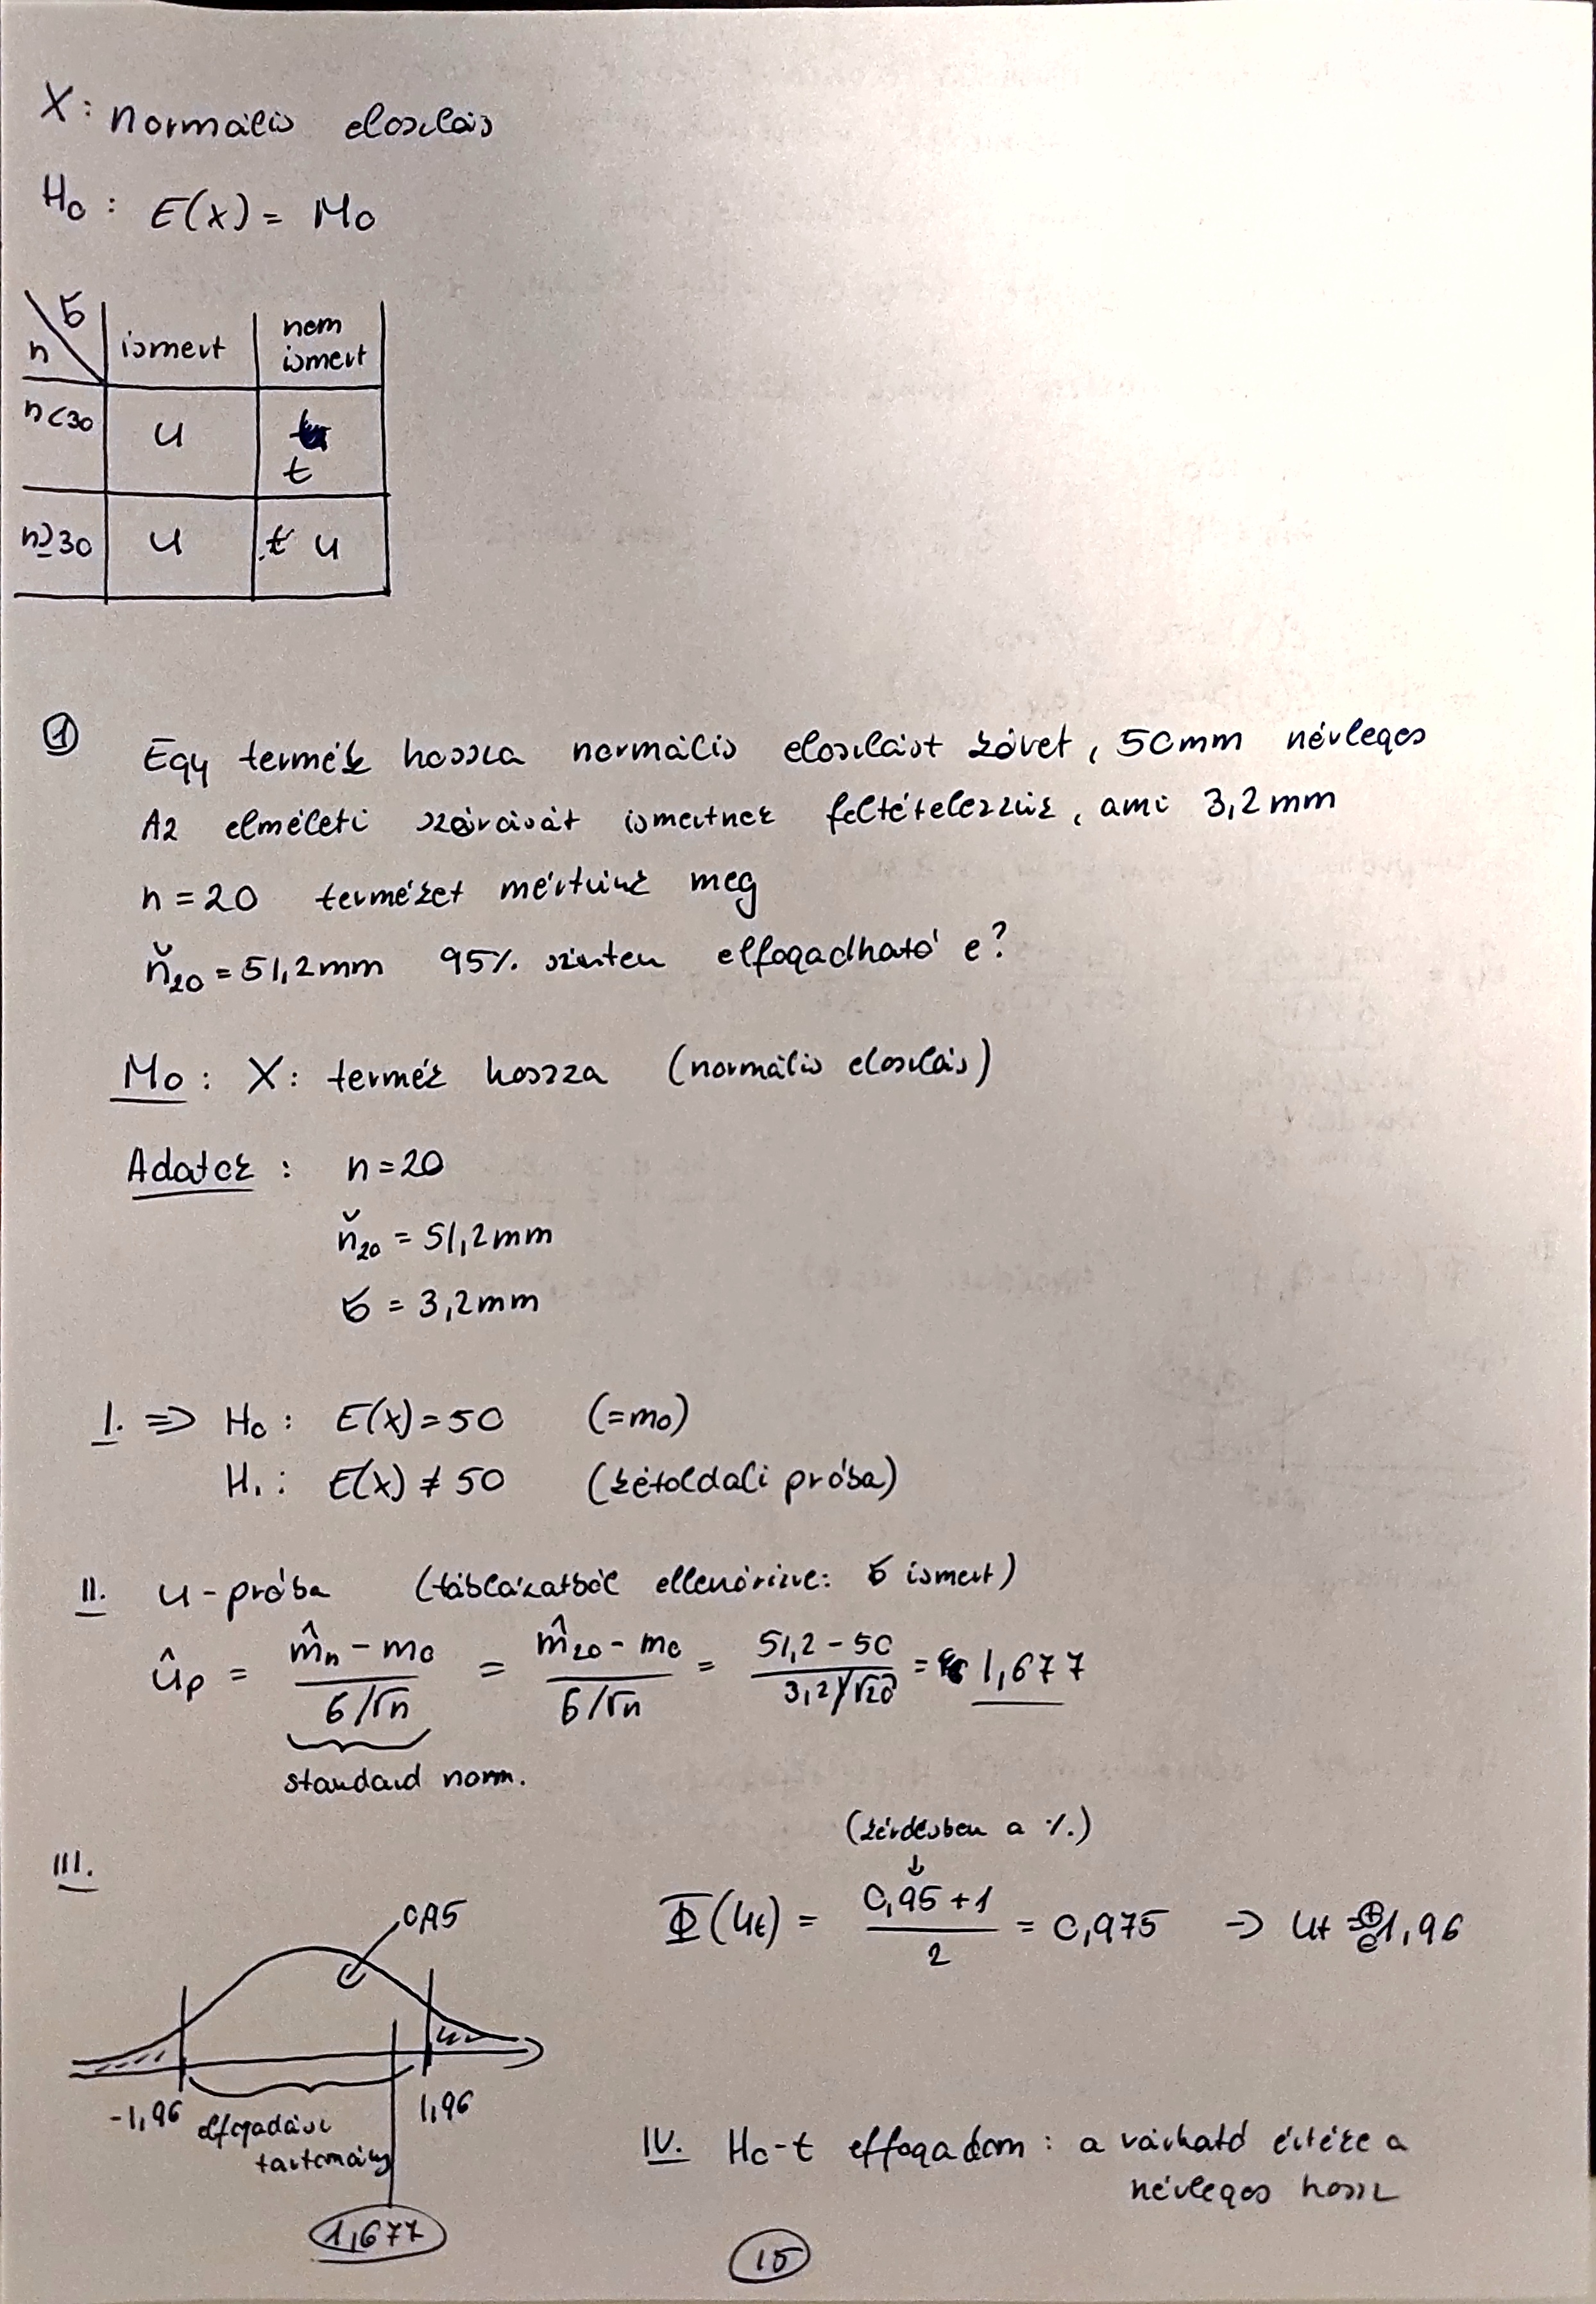 X: normális eloszlás
H₀ : E(x) = M₀
σ
n
ismert
nem ismert
n<30
u
t
n≥30
u
t u
① Egy termék hossza normális eloszlást követ, 50mm névleges
Az elméleti szórását ismertnek feltételezzük, ami 3,2mm
n = 20 terméket mértünk meg
m̌₂₀ = 51,2mm 95% szinten elfogadható e?
Mo: X: termék hossza (normális eloszlás)
Adatok : n = 20
m̌₂₀ = 51,2mm
σ = 3,2mm
I. => H₀ : E(x) = 50 (=m₀)
H₁ : E(x) ≠ 50 (kétoldali próba)
II. u-próba (táblázatból ellenőrizve: σ ismert)
ûp = (m̂n - m₀)/(σ/√n) = (m̂₂₀ - m₀)/(σ/√n) = (51,2 - 50)/(3,2/√20) = 1,677
standard norm.
(kérdésben a %.)
↓
III. Φ(ut) = (0,95 + 1)/2 = 0,975 → ut = 1,96
0,95
-1,96
1,96
elfogadási
tartomány
1,677
IV. H₀-t elfogadom : a várható értéke a
névleges hossz
15